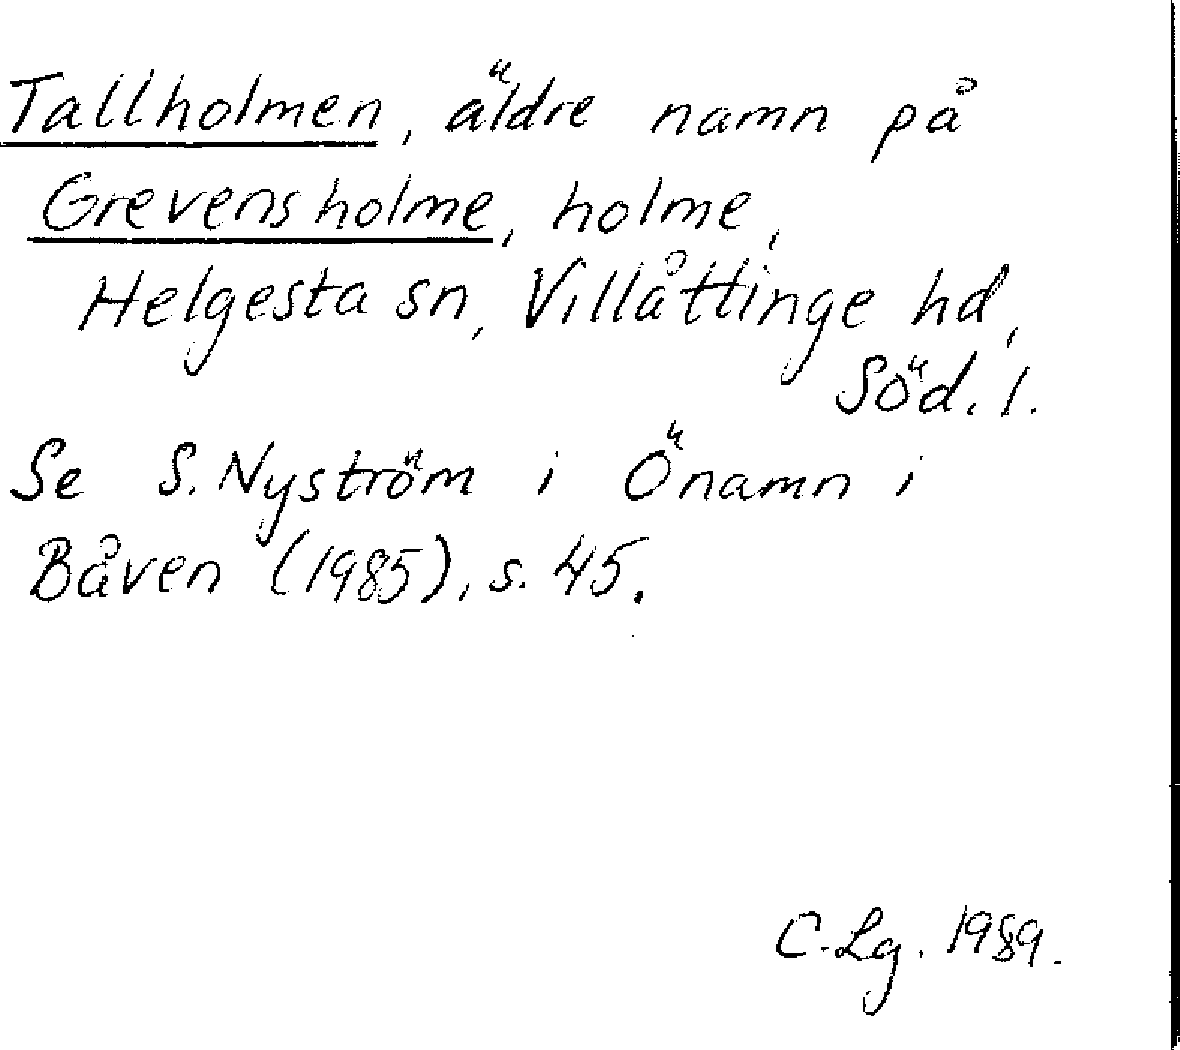 Tallholmen, äldre namn på
Grevens holme, holme,
Helgesta sn, Villåttinge hd,
Söd. l.
Se S. Nyström i Önamn i
Båven (1985), s. 45.
C. Lg. 1989.